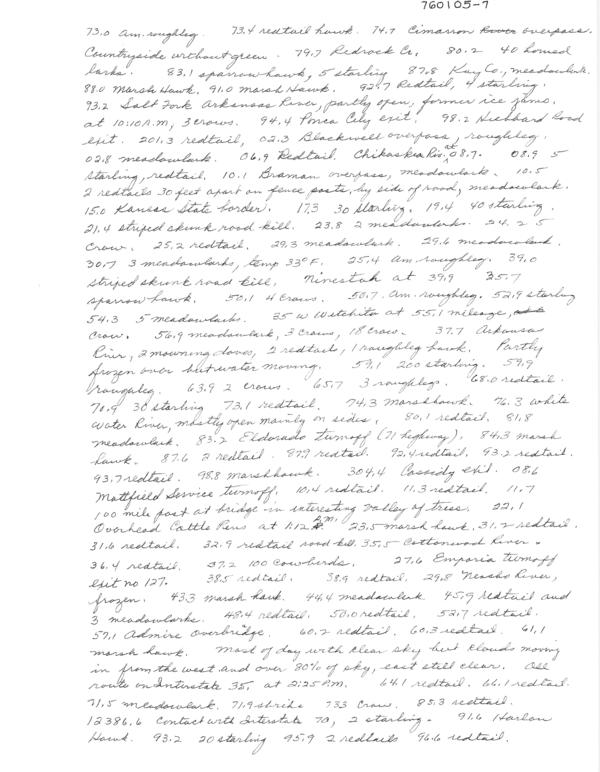 760105-7
73.0 Am. roughleg. 73.4 redtail hawk. 74.7 Cimarron River overpass.
Countryside without green. 79.7 Redrock Cr. 80.2 40 horned
larks. 83.1 sparrow hawk, 5 starling 87.8 Kay Co., meadowlark.
88.0 Marsh Hawk. 91.0 marsh Hawk. 92.7 Redtail, 4 starling.
93.2 Salt Fork Arkansas River, partly open, former ice jams.
at 10:10 A.M., 3 crows. 94.4 Ponca City exit. 98.2 Hubbard Road
exit. 201.3 redtail, 02.3 Blackwell overpass, roughleg.
02.8 meadowlark. 06.9 Redtail. Chikaskia Riv. at 08.7. 08.9 5
starling, redtail. 10.1 Braman overpass, meadowlark. 10.5
2 redtails 30 feet apart on fence posts, by side of road, meadowlark.
15.0 Kansas State border. 17.3 30 starling. 19.4 40 starling.
21.4 striped skunk road kill. 23.8 2 meadowlarks. 24.2 5
Crow. 25.2 redtail. 29.3 meadowlark. 29.6 meadowlark.
30.7 3 meadowlarks, temp 33°F. 25.4 am. roughleg. 39.0
striped skunk road kill. Ninescah at 39.9 35.7
sparrow hawk. 50.1 4 crows. 50.7 Am. roughleg. 52.9 starling
54.3 5 meadowlarks. 35 W Wichita at 55.1 mileage,
Crow. 56.9 meadowlark, 3 crows, 18 crow. 37.7 Arkansas
River, 2 mourning doves, 2 redtails, 1 roughleg hawk. Partly
frozen over but water moving. 59.1 200 starling. 59.9
roughleg. 63.9 2 crows. 65.7 3 roughlegs. 68.0 redtail.
70.9 30 starling 73.1 redtail. 74.3 marsh hawk. 76.3 White
Water River, mostly open mainly on sides, 80.1 redtail. 81.8
meadowlark. 83.2 Eldorado turnoff (71 highway). 84.3 marsh
hawk. 87.6 2 redtail. 87.9 redtail. 92.4 redtail, 93.2 redtail.
93.7 redtail. 98.8 marsh hawk. 304.4 Cassody exit. 08.6
Mattfield Service turnoff. 10.4 redtail. 11.3 redtail. 11.7
100 mile post at bridge in interesting valley of trees. 22.1
Overhead Cattle Pens at 1:12 P.M. 23.5 marsh hawk. 31.2 redtail.
31.6 redtail. 32.9 redtail road kill. 35.5 Cottonwood River.
36.4 redtail. 37.2 100 cowbirds. 27.6 Emporia turnoff
exit no 127. 38.5 redtail. 38.9 redtail. 29.8 Neosho River,
frozen. 43.3 marsh hawk. 44.4 meadowlark 45.9 redtail and
3 meadowlarks. 48.4 redtail. 50.0 redtail. 52.7 redtail.
57.1 Admire Overbridge. 60.2 redtail. 60.3 redtail. 61.1
marsh hawk. Most of day with clear sky but clouds moving
in from the west and over 80% of sky, east still clear. All
route on Interstate 35, at 2:25 P.M. 64.1 redtail. 66.1 redtail.
71.5 meadowlark. 71.9 shrike 73.3 Crow. 85.3 redtail.
12386.6 Contact with Interstate 70, 2 starling. 91.6 Harlan
Hawk. 93.2 20 starling 95.9 2 redtails 96.6 redtail.